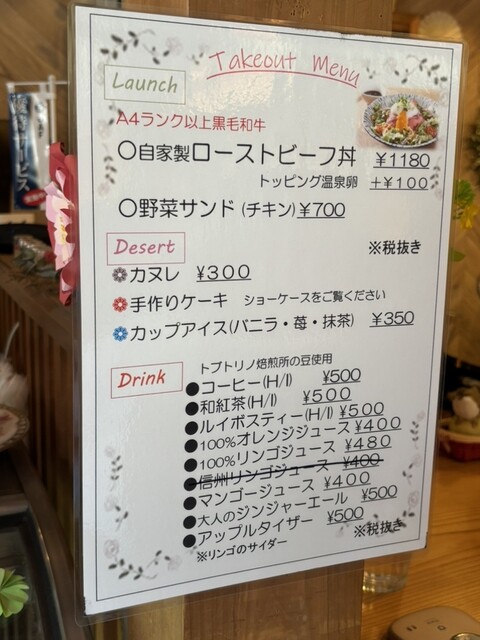 Takeout Menu
Launch
A4ランク以上黒毛和牛
〇自家製ローストビーフ丼 ¥1180
トッピング温泉卵 +¥100
〇野菜サンド(チキン)¥700
Desert ※税抜き
カヌレ ¥300
手作りケーキ ショーケースをご覧ください
カップアイス(バニラ・苺・抹茶) ¥350
Drink
トプトリノ焙煎所の豆使用
●コーヒー(H/I) ¥500
●和紅茶(H/I) ¥500
●ルイボスティー(H/I) ¥500
●100%オレンジジュース ¥400
●100%リンゴジュース ¥480
●信州リンゴジュース ¥400
●マンゴージュース ¥400
●大人のジンジャーエール ¥500
●アップルタイザー ¥500
※リンゴのサイダー ※税抜き